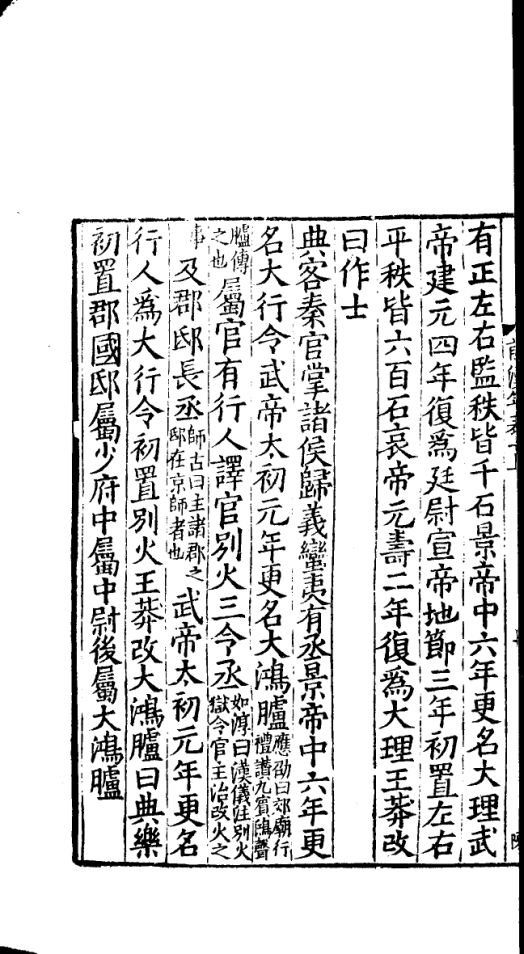 有正左右監秩皆千石景帝中六年更名大理武
帝建元四年復爲廷尉宣帝地節三年初置左右
平秩皆六百石哀帝元壽二年復爲大理王莽改
曰作士
典客秦官掌諸侯歸義蠻夷有丞景帝中六年更
名大行令武帝太初元年更名大鴻臚應劭曰郊廟行禮讚九賓鴻聲
臚傳之也屬官有行人譯官別火三令丞如淳曰漢儀注別火獄令官主治改火之
事及郡邸長丞師古曰主諸郡之邸在京師者也武帝太初元年更名
行人爲大行令初置別火王莽改大鴻臚曰典樂
初置郡國邸屬少府中屬中尉後屬大鴻臚